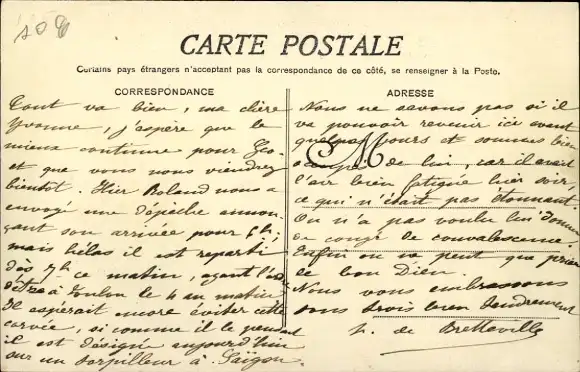 108
CARTE POSTALE
Certains pays étrangers n'acceptant pas la correspondance de ce côté, se renseigner à la Poste.
CORRESPONDANCE
Tout va bien, ma chère
Yvonne, j'espère que le
mieux continue pour
et que vous nous viendrez
bientôt. Hier Roland nous a
envoyé une dépêche annon-
çant son arrivée pour 6h;
mais hélas il est reparti
dès 7h ce matin, ayant l'ordre
d'être à Toulon le 4 au matin
Il espérait encore éviter cette
corvée, si comme il le pensait
il est désigné aujourd'hui
sur un torpilleur à Saïgon.
ADRESSE
Nous ne savons pas si il
va pouvoir revenir ici avant
quelques jours et sommes bien
M
de lui, car il avait
l'air bien fatigué hier soir,
ce qui n'était pas étonnant.
On n'a pas voulu lui donner
de congé de convalescence.
Enfin on ne peut que prier
le bon Dieu.
Nous vous embrassons
tous trois bien tendrement
de Bretteville